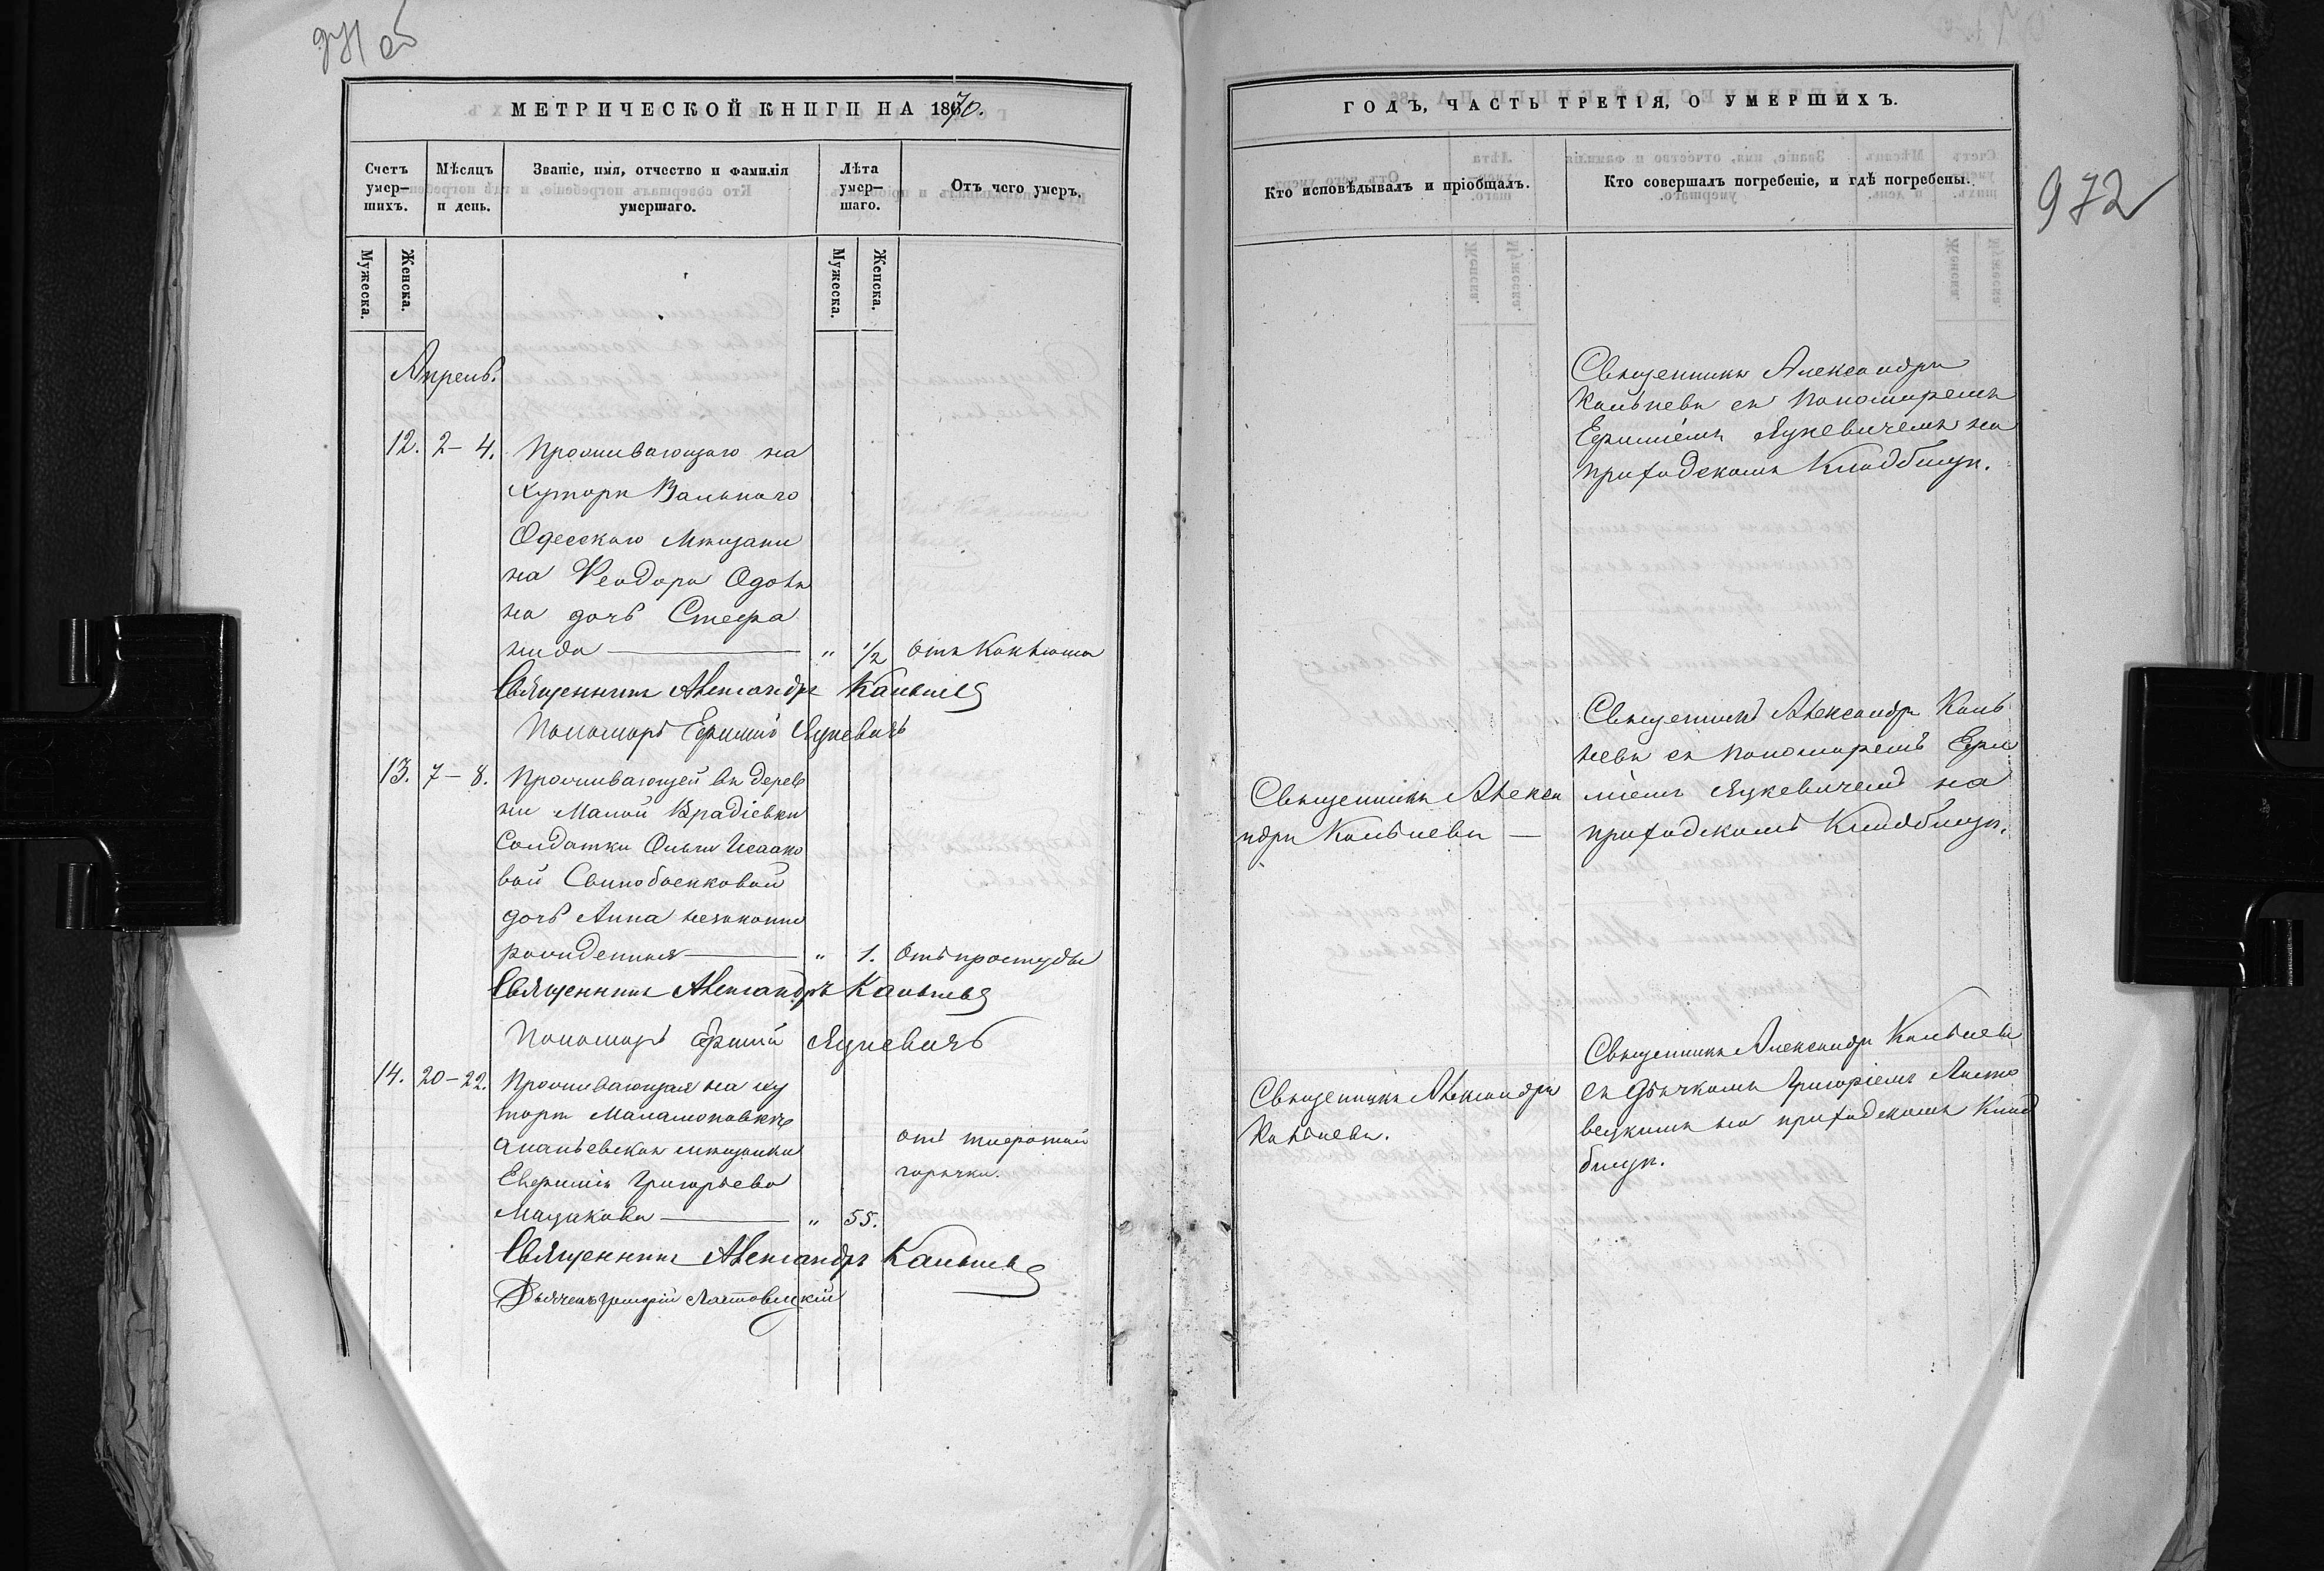 971 об
МЕТРИЧЕСКОЙ КНИГИ НА 1870.
Счетъ умер-шихъ.
Мѣсяцъ и день.
Званіе, имя, отчество и фамилія умершаго.
Лѣта умер-шаго.
Отъ чего умеръ.
Мужеска.
Женска.
Мужеска.
Женска.
Апрель.
12. 2–4. Проживающаго на
хуторѣ Вольнаго
Одесскаго Мѣщани
на Ѳеодора
на дочь Стефа
нида — " 1/2 отъ Коклюша
Священникъ Александръ Кальневъ
Пономарь Ефимій Яцкевичъ
13. 7–8. Проживающей въ дерев
ни Малой Врадіевки
Солдатки Ольги Исаако
вой Свинобоенковой
дочь Анна незаконно
рожденная — " 1. Отъ простуды
Священникъ Александръ Кальневъ
Пономарь Ефимій Яцкевичъ
14. 20–22. Проживающая на ху
торѣ
Ананьевская мѣщанка
Евфимія Григорьева
Мацакова — " 55.
отъ тифозной
горячки.
Священникъ Александръ Кальневъ
Дьячекъ Григорій Лястовецкій
ГОДЪ, ЧАСТЬ ТРЕТІЯ, О УМЕРШИХЪ.
972
Кто исповѣдывалъ и пріобщалъ.
Кто совершалъ погребеніе, и гдѣ погребены.
Священникъ Александръ
Кальневъ съ пономаремъ
Ефиміемъ Яцкевичемъ на
приходскомъ Кладбищѣ.
Священникъ Алекса
ндръ Кальневъ —
Священникъ Александръ Каль
невъ съ пономаремъ Ефи
міемъ Яцкевичемъ на
приходскомъ Кладбищѣ.
Священникъ Александръ
Кальневъ.
Священникъ Александръ Кальневъ
съ Дьячкомъ Григоріемъ Лясто
вецкимъ на приходскомъ Клад
бищѣ.